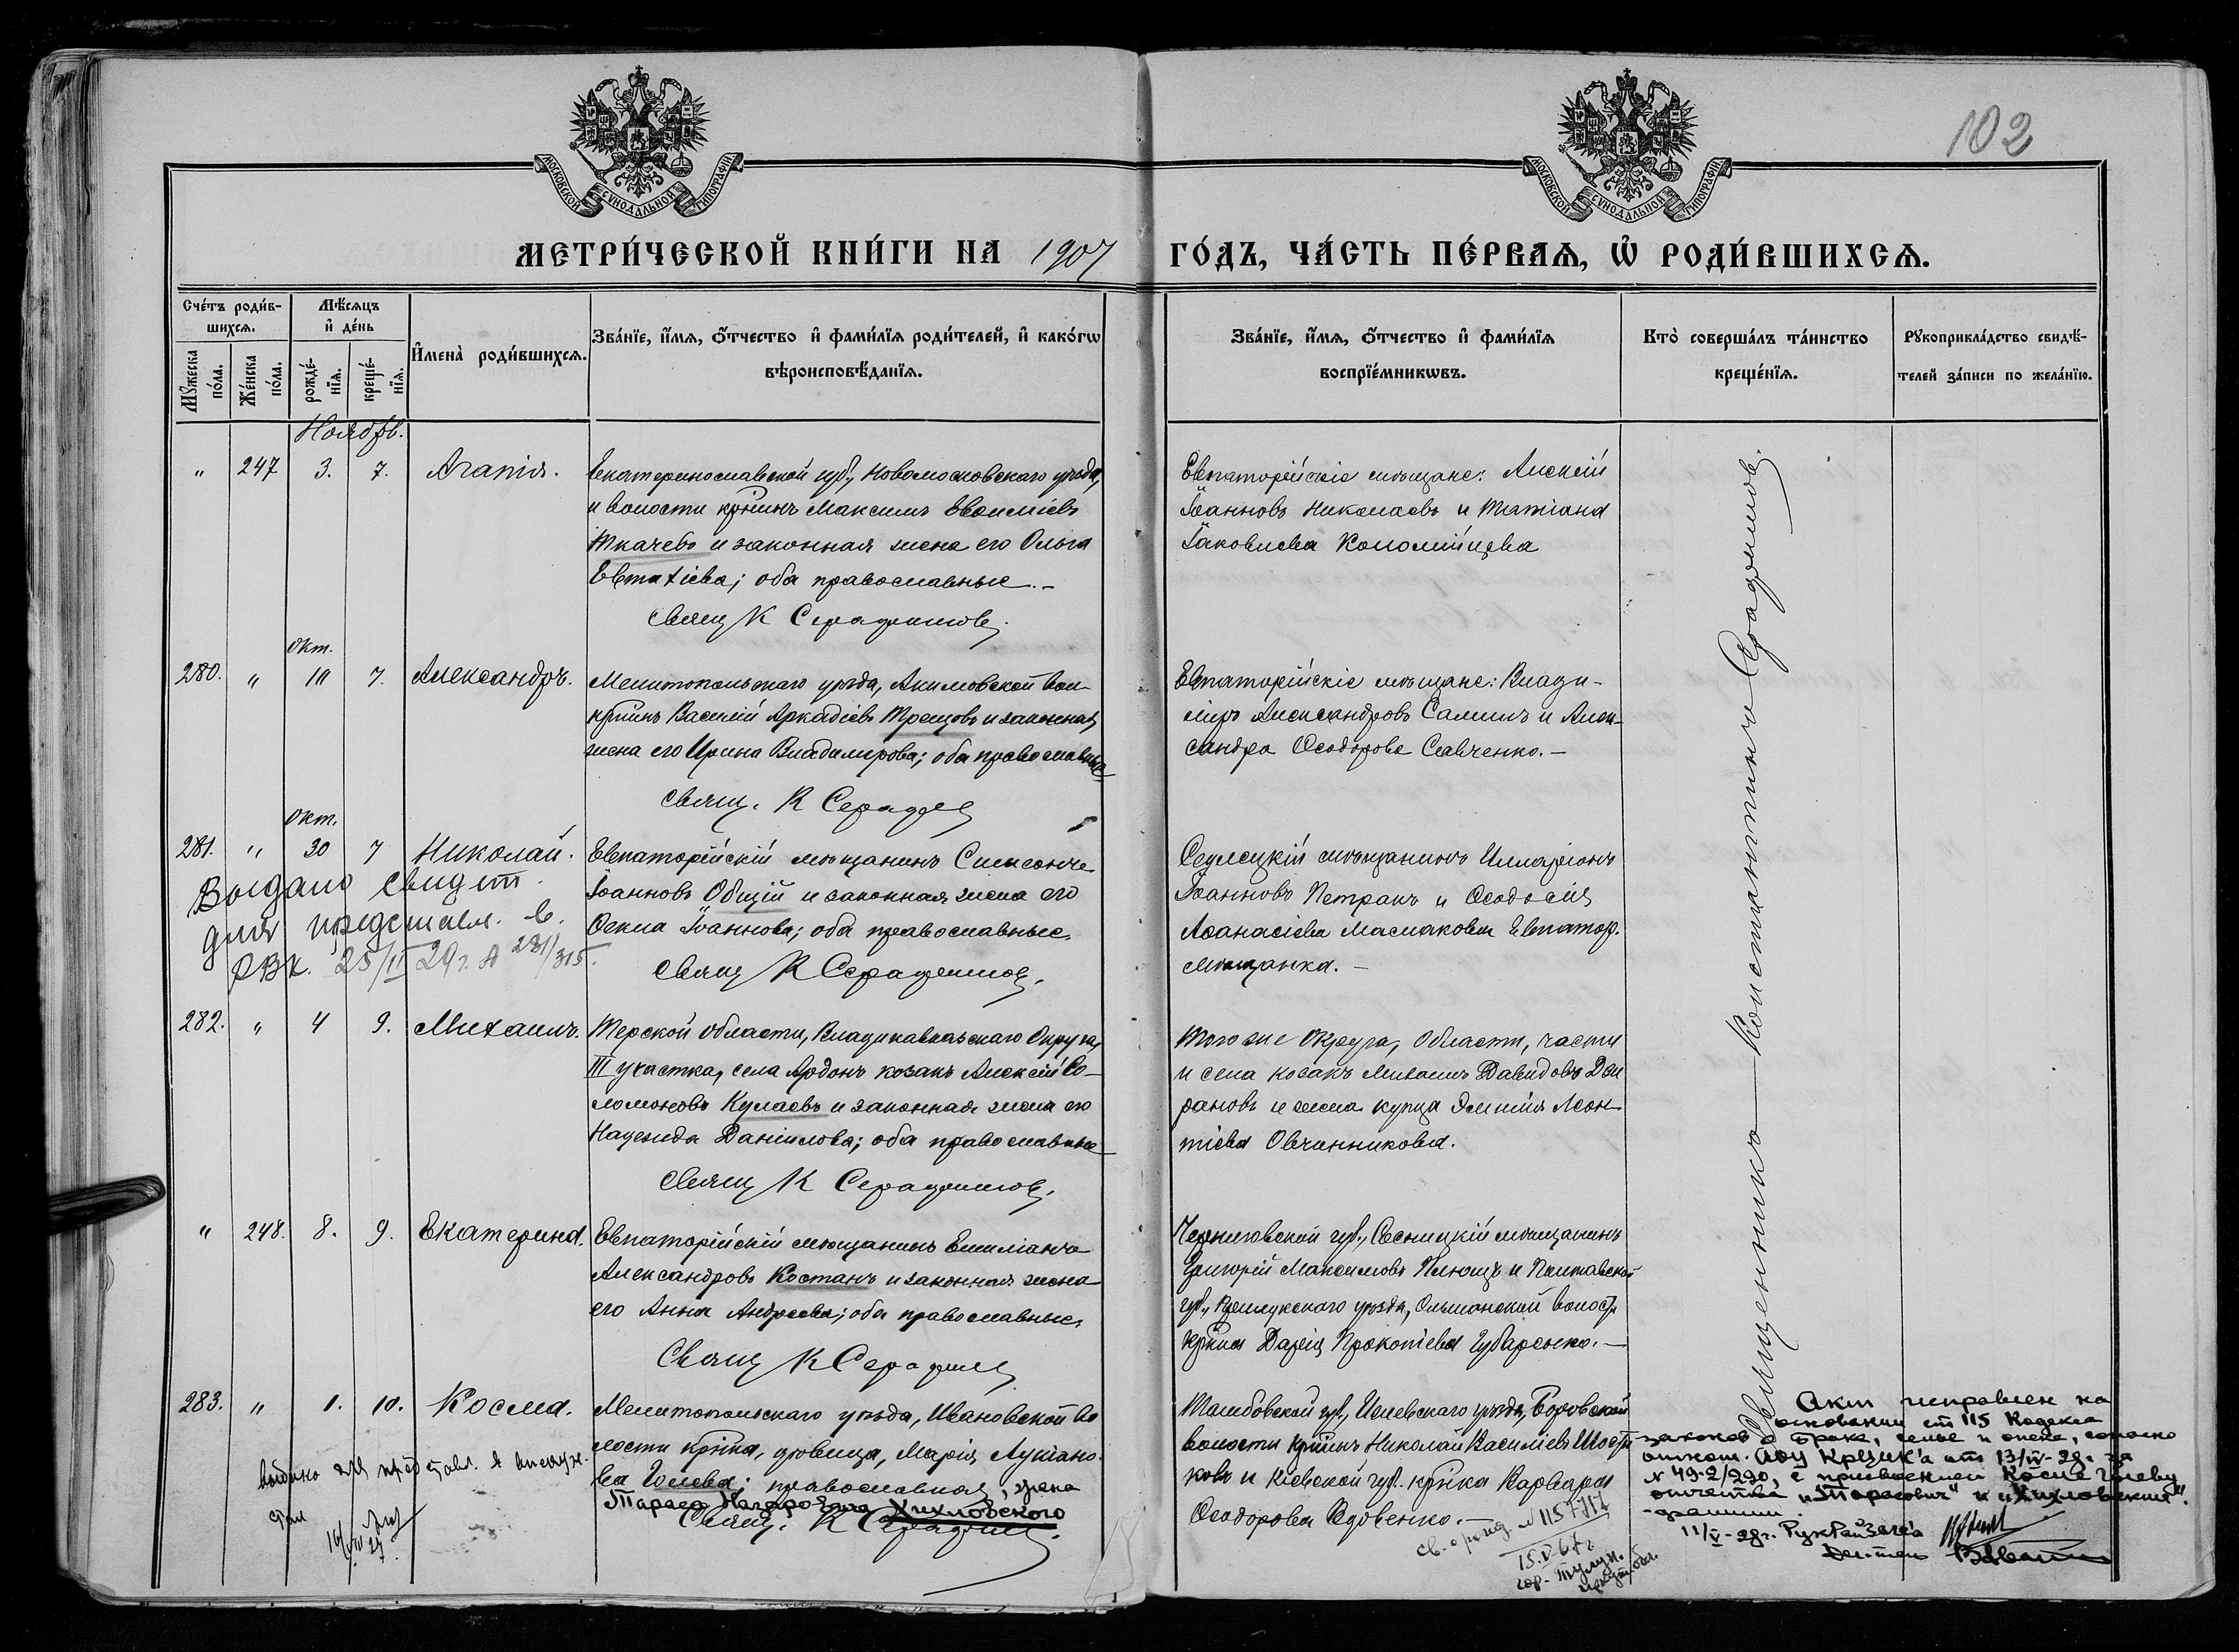 102
МОСКОВСКОЙ СУНОДАЛЬНОЙ ТИПОГРАФІИ
МОСКОВСКОЙ СУНОДАЛЬНОЙ ТИПОГРАФІИ
МЕТРИ́ЧЕСКОЙ КНИ́ГИ НА 1907 ГО́ДЪ, ЧА́СТЬ ПЕ́РВАѦ, Ѡ҆ РОДИ́ВШИХСѦ.
Сче́тъ роди́в-
шихсѧ.
Мѣ́сѧцъ
и҆ де́нь
Мꙋ́жеска
по́ла.
Же́нска
по́ла.
рожде́-
нїѧ.
креще́-
нїѧ.
И҆мена̀ роди́вшихсѧ.
Зва́нїе, и҆́мѧ, ѻ҆́тчество и҆ фами́лїѧ роди́телей, и҆ како́гѡ
вѣроисповѣ́данїѧ.
Зва́нїе, и҆́мѧ, ѻ҆́тчество и҆ фами́лїѧ
воспрїе́мникѡвъ.
Кто̀ соверша́лъ та́инство
креще́нїѧ.
Рꙋкоприкла́дство свидѣ́-
телей за́писи по жела́нїю.
Ноябрь.
" 247 3. 7. Агапія.
Екатеринославской губ., Новомосковскаго уѣзда,
и волости кр‾нинъ Максимъ Евѳиміевъ
Ткачевъ и законная жена его Ольга
Евтихіева; оба православные.–
Свящ К Серафимовъ.
Евпаторійскіе мѣщане: Алексѣй
Іоанновъ Николаевъ и Татіана
Іаковлева Коломійцева
окт.
280. " 10 7. Александръ.
Мелитопольскаго уѣзда, Акимовской вол.
кр‾нинъ Василій Аркадіевъ Трецовъ и законная
жена его Ирина Владимірова; оба православные
Свящ. К Сераф
Евпаторійскіе мѣщане: Влади-
міръ Александровъ Салминъ и Алек-
сандра Ѳеодорова Савченко.–
окт.
281. " 30 7 Николай.
Евпаторійскій мѣщанинъ Симеонъ
Іоанновъ Общій и законная жена его
Ѳекла Іоаннова; оба православные.
Свящ К Серафимов.
Выдано свидет.
для представл. в
РВК. 25/II 29г. № 281/315.
Іоанновъ Петракъ и Ѳеодосія
Аѳанасіева Маслакова Евпатор.
мѣщанка.–
282. " 4 9. Михаилъ.
Терской области, Владикавказскаго Округа,
III участка, села Ардонъ козакъ Алексѣй Со-
ломоновъ Кулаевъ и законная жена его
Надежда Даніилова; оба православные
Свящ К Серафимовъ.
Того же Округа, области, части
и села козакъ Михаилъ Давидовъ
и жена купца Эмилія Леон-
тіева Овчинникова.
" 248. 8. 9. Екатерина.
Евпаторійскій мѣщанинъ Емиліанъ
Александровъ Костанъ и законная жена
его Анна Андреева; оба православные.
Свящ К Серафим
Черниговской губ., Сосницкій мѣщанинъ
Григорій Максимовъ Плющъ и Полтавской
губ., Прилукскаго уѣзда, Ольшанской волости
кр‾нка Дарія Прокопіева Губаренко.–
283. " 1. 10. Косма.
Мелитопольскаго уѣзда, Ивановской во
лости кр‾нка, дѣвица, Марія Лукіано-
ва Гилева; православная
Тараса Назаровича Хихловского
Свящ. К Серафим.
выдано для представл. в
Тамбовской губ., уѣзда, Боровской
волости кр‾нинъ Николай Василіевъ
ковъ и Кіевской губ. кр‾нка Варвара
Ѳеодорова Вдовенко.–
св. о рожд. № 115711
15.V 67 г
гор. Тулун.
Иркутс. обл.
Священникъ — Константинъ Серафимовъ.
Акт исправлен на
основании ст 115 Кодекса
законов о браке, семье и опеке, согласно
отнош. АОУ КрЦИК'а от 13/IV-28г. за
№ 49-2/290, с присвоением Косме Гилеву
отчества "Тарасович" и "Хихловский".
11/V-28г.